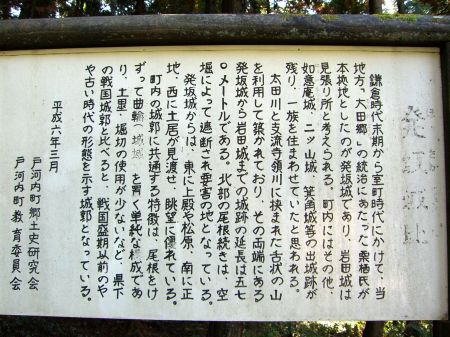 発坂城址
鎌倉時代末期から室町時代にかけて、当
地方、「太田郷」の統治にあたった栗栖氏が
本拠地としたのが発坂城であり、岩田城は
見張り所と考えられる。町内にはその他、
如意庵城、二ッ山城、茗荷城等の出城跡が
残り、一族を住まわせていたと思われる。
太田川と支流寺領川に挟まれた舌状の山
を利用して築かれており、その両端にある
発坂城から岩田城までの城跡の延長は五七
〇メートルである。北部の尾根続きは、空
堀によって遮断され要害の地となっている。
発坂城からは、東に上殿や松原、南に正
地、西に土居が見渡せ、眺望に優れている。
町内の城郭に共通する特徴は、尾根をけ
ずって曲輪（城域）を置く単純な構成であ
り、土塁、堀切の使用が少ないなど、県下
の戦国城郭と比べると、戦国盛期以前のや
や古い時代の形態を示す城郭となっている。
平成六年三月
戸河内町郷土史研究会
戸河内町教育委員会